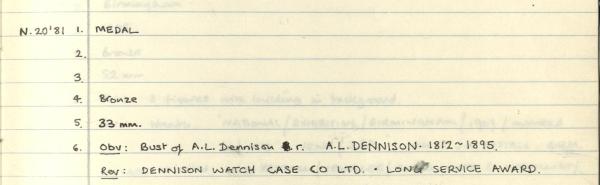 N.20'81 1. MEDAL
2.
3.
4. Bronze
5. 33 mm.
6. Obv: Bust of A.L. Dennison r. A.L. DENNISON. 1812~1895.
Rev: DENNISON WATCH CASE CO LTD. · LONG SERVICE AWARD.